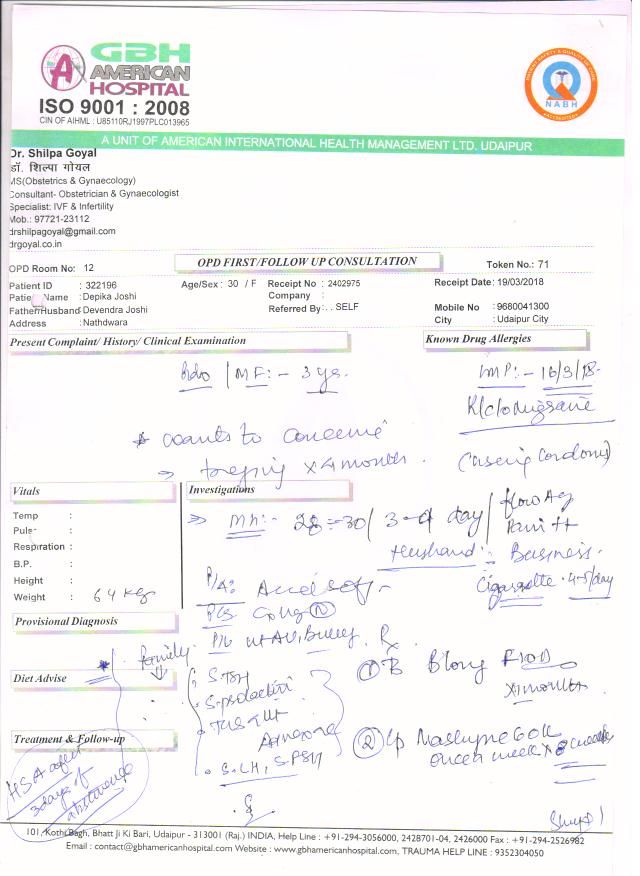 GBH
AMERICAN
HOSPITAL
ISO 9001 : 2008
CIN OF AIHML : U85110RJ1997PLC013965
NABH
A UNIT OF AMERICAN INTERNATIONAL HEALTH MANAGEMENT LTD. UDAIPUR
Dr. Shilpa Goyal
डॉ. शिल्पा गोयल
MS(Obstetrics & Gynaecology)
Consultant- Obstetrician & Gynaecologist
Specialist: IVF & Infertility
Mob.: 97721-23112
drshilpagoyal@gmail.com
drgoyal.co.in
OPD Room No: 12
OPD FIRST/FOLLOW UP CONSULTATION
Token No.: 71
Patient ID : 322196 Age/Sex : 30 / F Receipt No : 2402975 Receipt Date: 19/03/2018
Patient Name : Depika Joshi Company :
Father/Husband: Devendra Joshi Referred By: . . SELF Mobile No : 9680041300
Address : Nathdwara City : Udaipur City
Present Complaint/ History/ Clinical Examination
Known Drug Allergies
MF:- 3 yrs.
LMP:- 16/3/18.
K/c/o Migraine
wants to conceive
trying x 4 months. (using condoms)
Vitals
Investigations
MH:- 28-30/ 3-4 day/ flow Avg
Pain ++
Husband: Business.
Cigarette. 4-5/day
Temp :
Pulse :
Respiration :
B.P. :
Height :
Weight : 64 Kg
P/A: soft
P/S
Provisional Diagnosis
Rx
Diet Advise
S. TSH
S. prolactin
S. LH, S. FSH
①
x 1 months
②
once a week x
Treatment & Follow-up
HSA after
3 days of
abstinence
101, Kothi Bagh, Bhatt Ji Ki Bari, Udaipur - 313001 (Raj.) INDIA, Help Line : +91-294-3056000, 2428701-04, 2426000 Fax : +91-294-2526982
Email : contact@gbhamericanhospital.com Website : www.gbhamericanhospital.com, TRAUMA HELP LINE : 9352304050